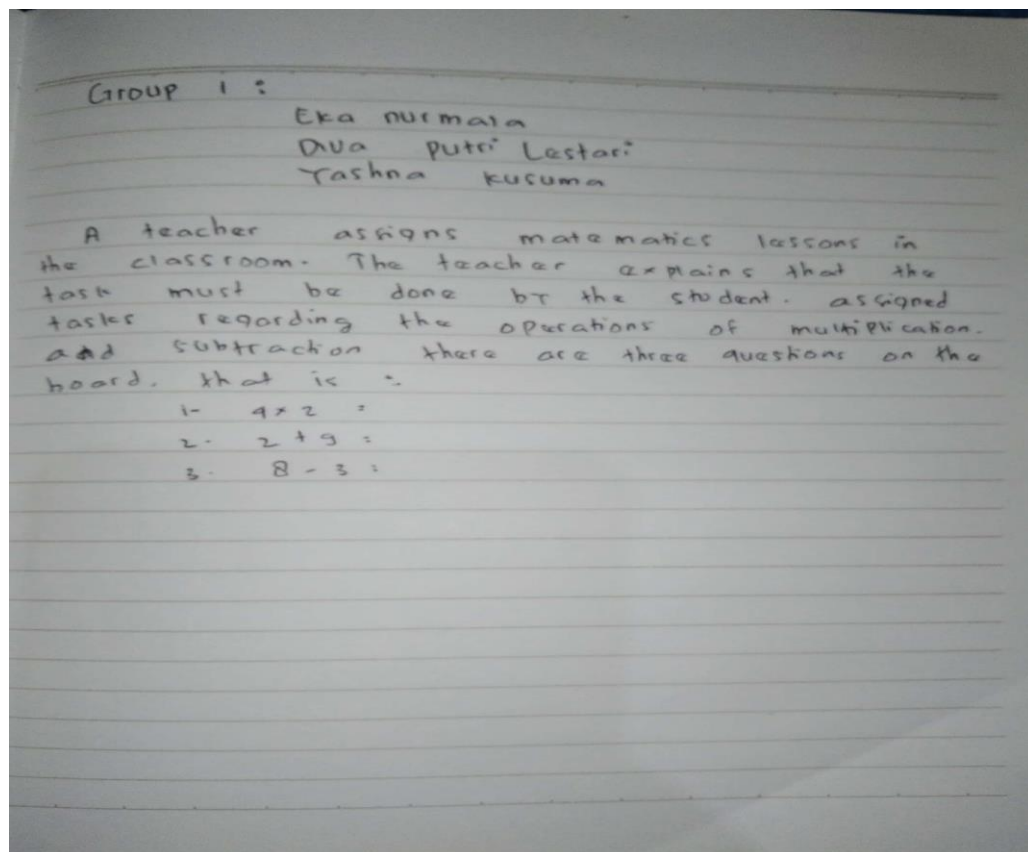 Group 1 :
Eka nurmala
Diva Putri Lestari
Yashna Kusuma
A teacher assigns matematics lessons in
the classroom. The teacher explains that the
task must be done by the student. assigned
tasks regarding the operations of multiplication.
and subtraction there are three questions on the
board. that is :
1- 4 x 2 =
2. 2 + 9 =
3. 8 - 3 =